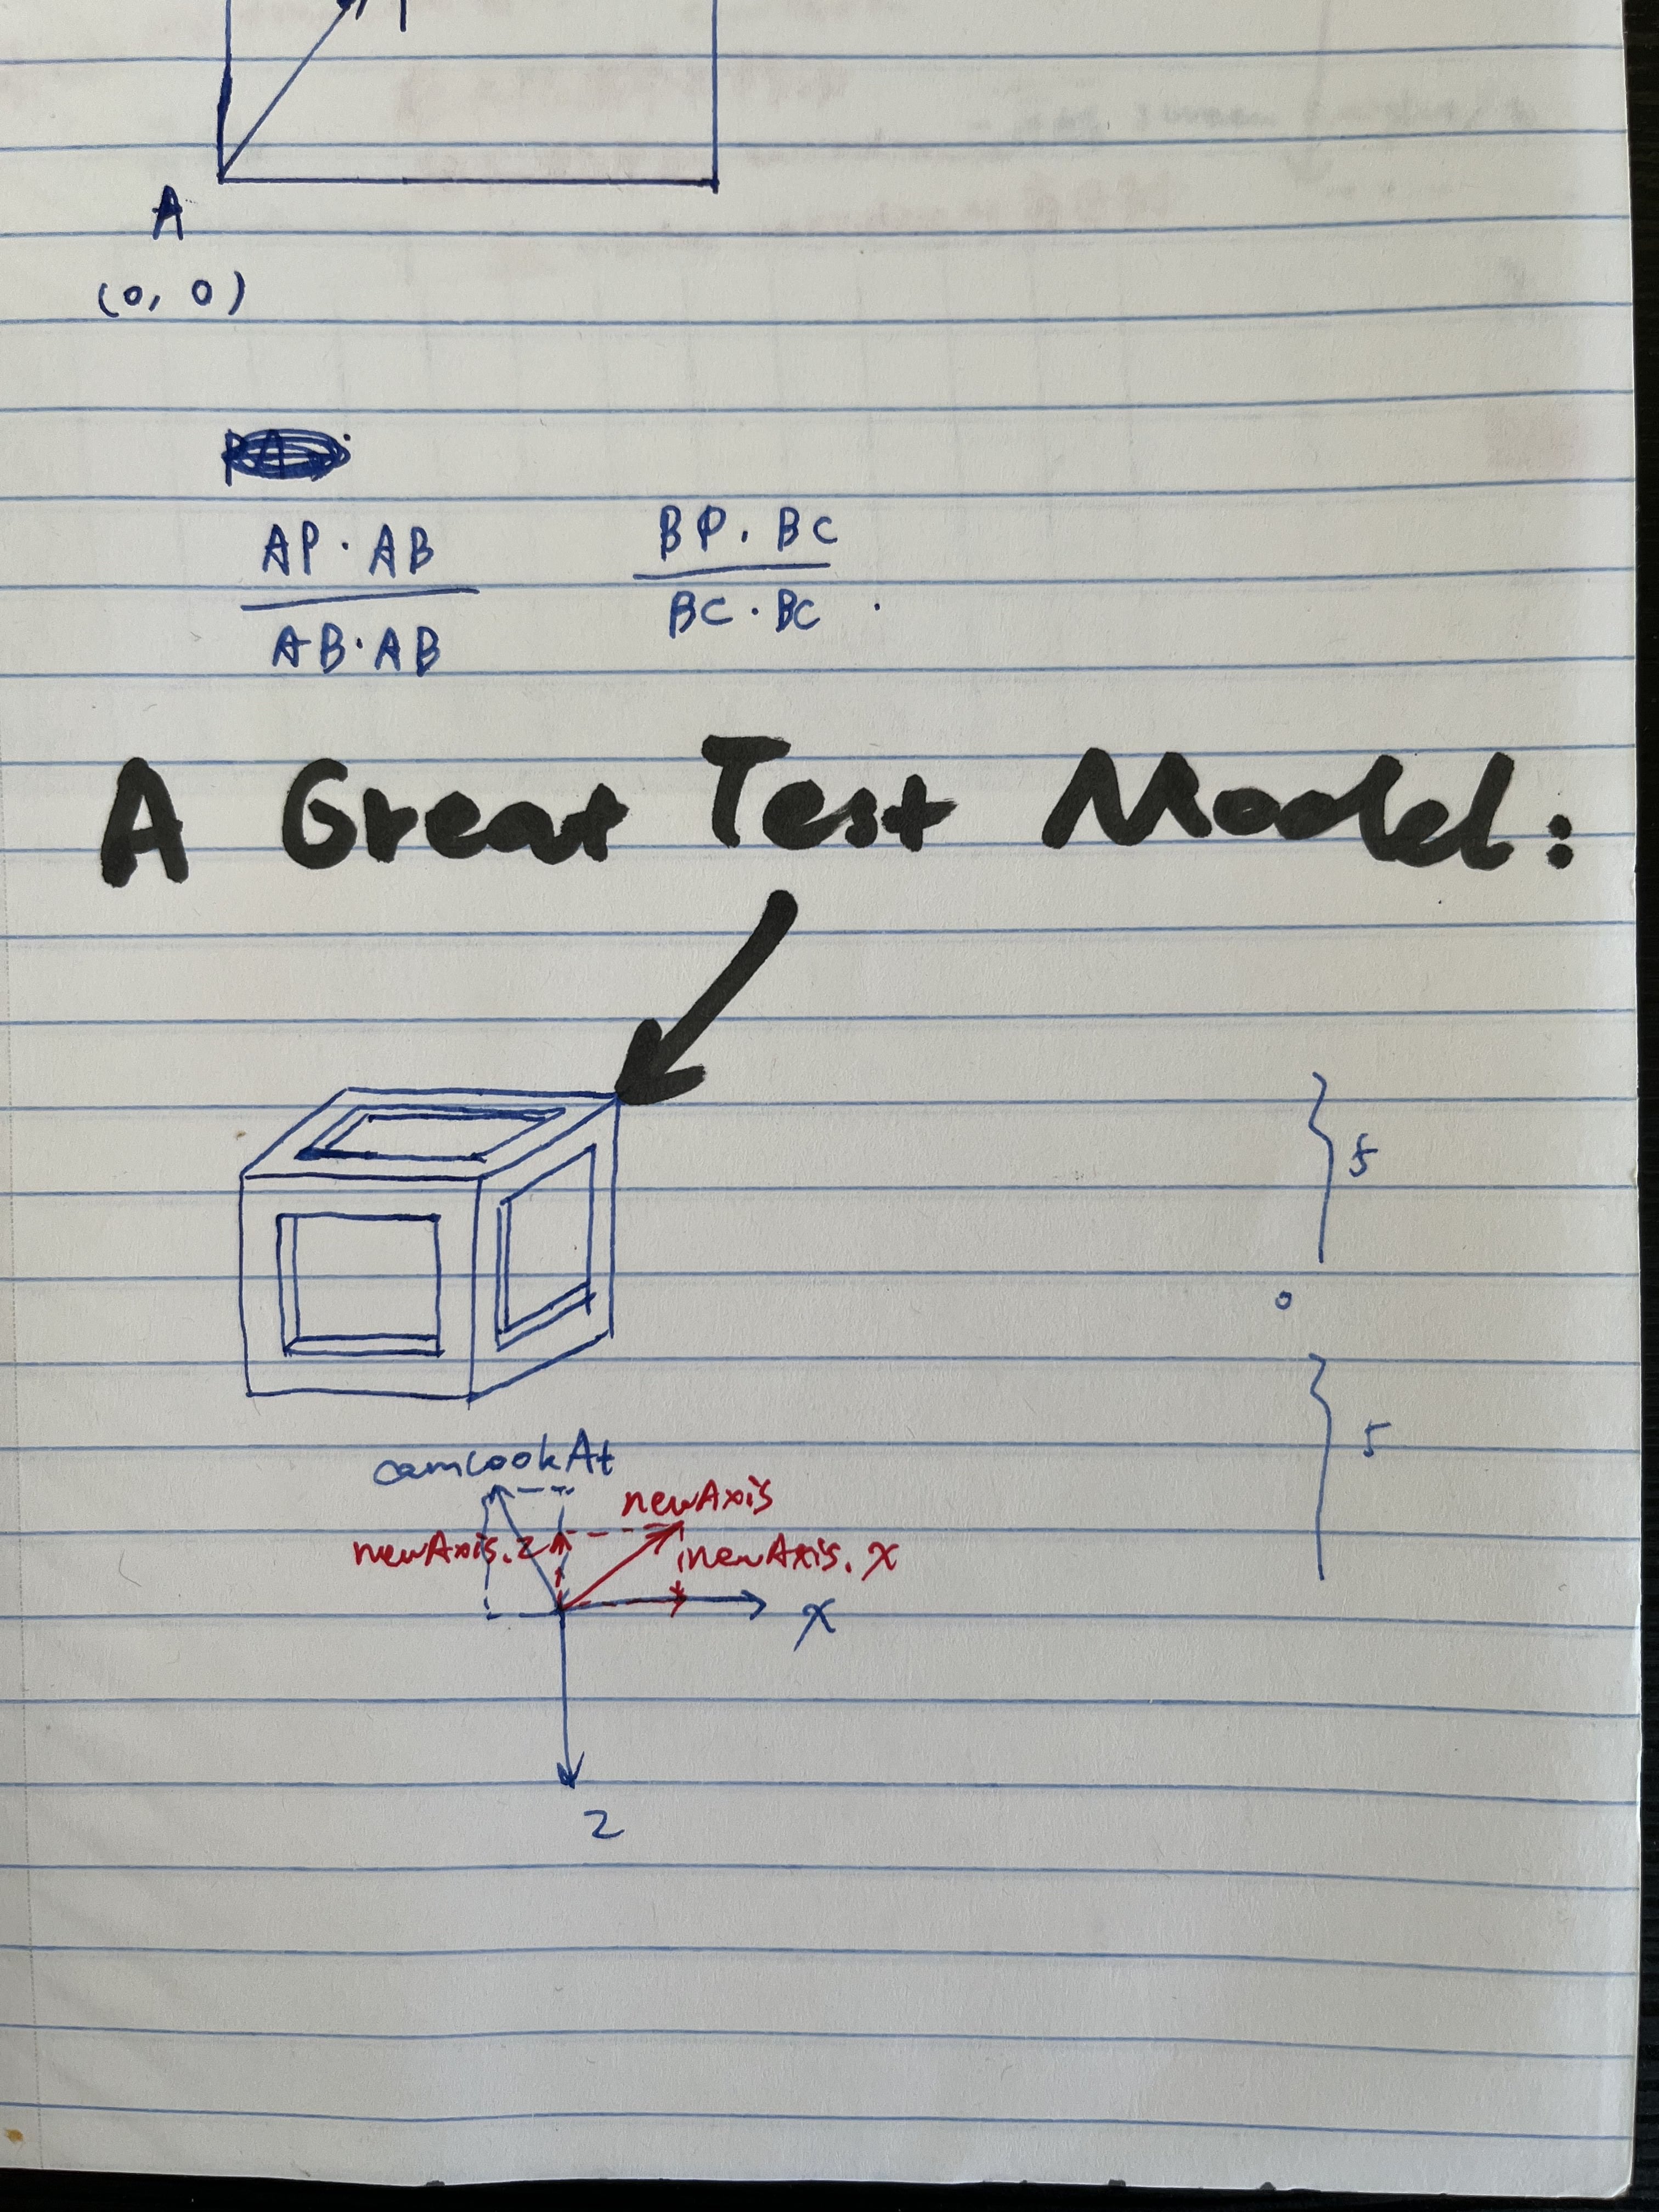 A
(0, 0)
AP · AB
AB · AB
BP · BC
BC · BC
A Great Test Model:
5
0
5
camLookAt
newAxis
newAxis.z
newAxis.x
x
z